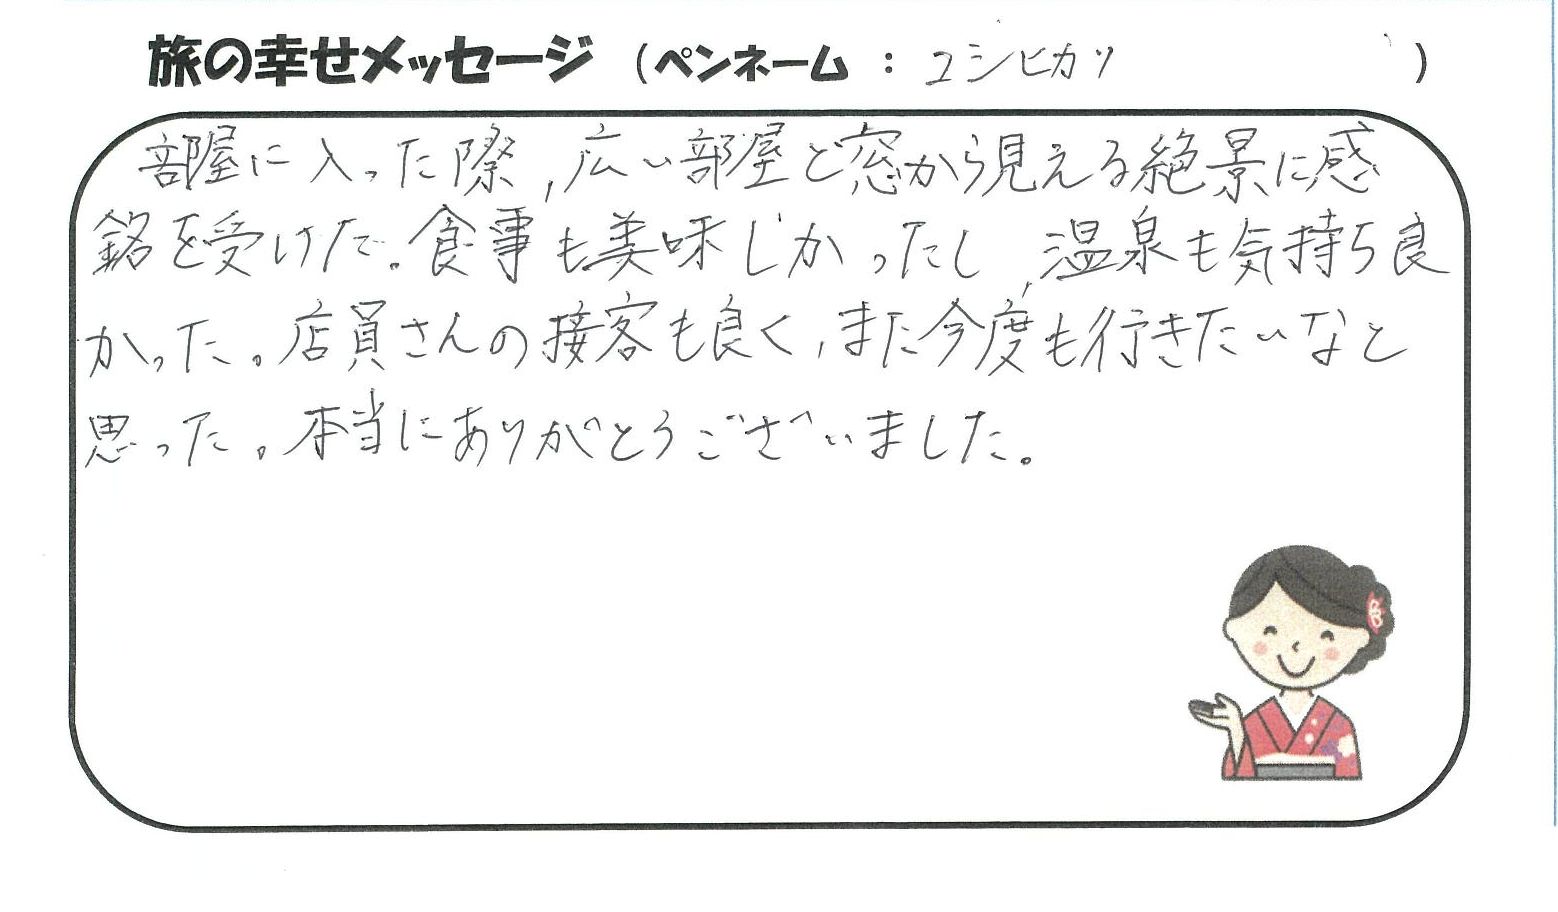 旅の幸せメッセージ (ペンネーム : コシヒカリ )
部屋に入った際,広い部屋と窓から見える絶景に感
銘を受けた。食事も美味しかったし,温泉も気持ち良
かった。店員さんの接客も良く,また今度も行きたいなと
思った。本当にありがとうございました。